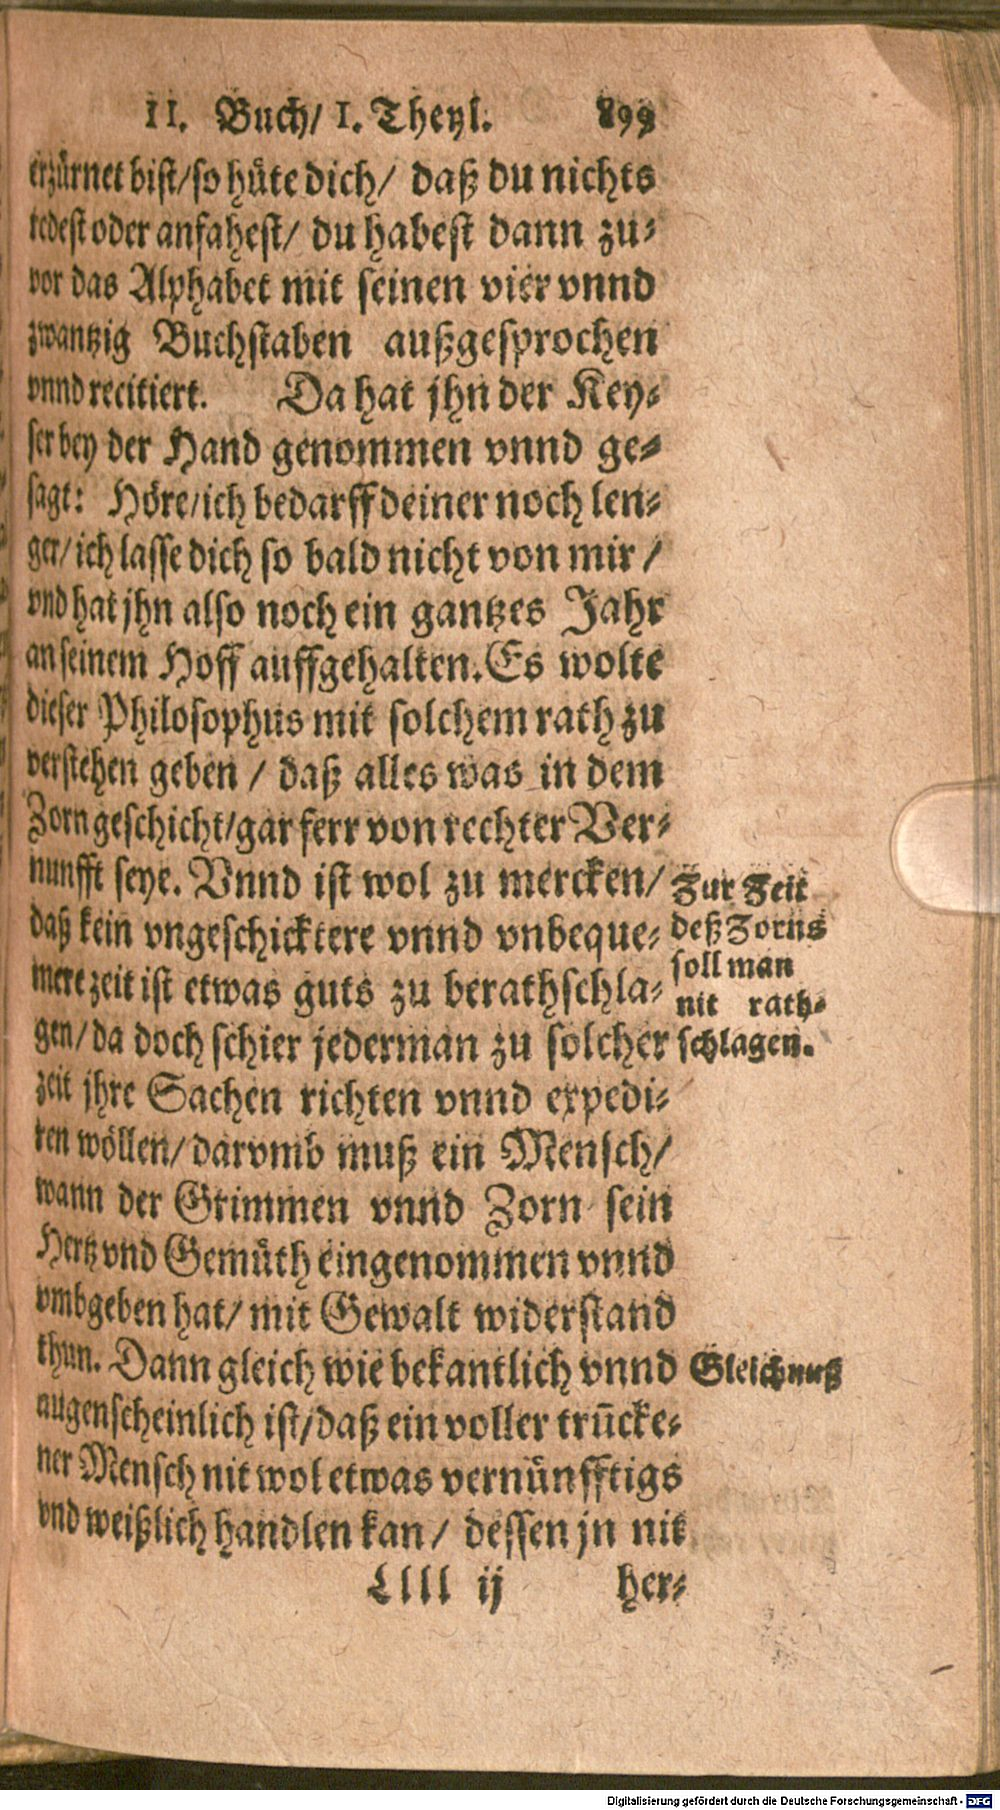 II. Buch/ I. Theyl. 899
erzürnet bist/so hüte dich/ daß du nichts
redest oder anfahest/ du habest dann zu-
vor das Alphabet mit seinen vier vnnd
zwantzig Buchstaben außgesprochen
vnnd recitiert. Da hat jhn der Key-
ser bey der Hand genommen vnnd ge-
sagt: Höre/ich bedarff deiner noch len-
ger/ ich lasse dich so bald nicht von mir /
vnd hat jhn also noch ein gantzes Jahr
an seinem Hoff auffgehalten. Es wolte
dieser Philosophus mit solchem rath zu
verstehen geben / daß alles was in dem
Zorn geschicht/gar ferr von rechter Ver-
nunfft seye. Vnnd ist wol zu mercken/
daß kein vngeschicktere vnnd vnbeque-
mere zeit ist etwas guts zu berathschla-
gen/ da doch schier jederman zu solcher
zeit jhre Sachen richten vnnd expedi-
ren wöllen/ darvmb muß ein Mensch/
wann der Grimmen vnnd Zorn sein
Hertz vnd Gemüth eingenommen vnnd
vmbgeben hat/ mit Gewalt widerstand
thun. Dann gleich wie bekantlich vnnd
augenscheinlich ist/daß ein voller trũcke-
ner Mensch nit wol etwas vernünfftigs
vnd weißlich handlen kan/ dessen jn nit
Llll ij her-
Zur Zeit
deß Zorns
soll man
nit rath-
schlagen.
Gleichnuß
Digitalisierung gefördert durch die Deutsche Forschungsgemeinschaft - DFG